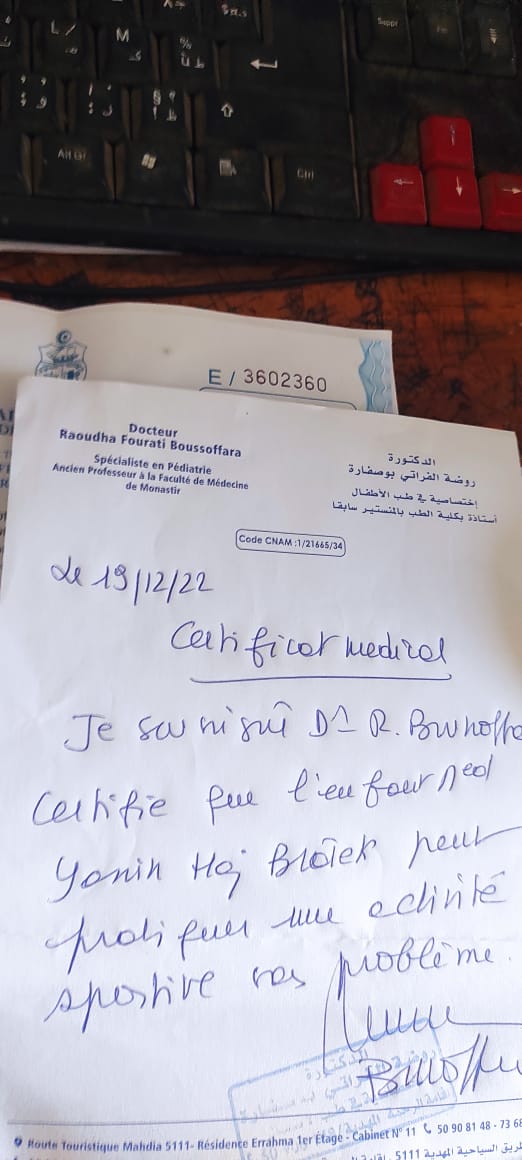 Suppr
M
Alt Gr
Ctrl
E / 3602360
Docteur
Raoudha Fourati Boussoffara
Spécialiste en Pédiatrie
Ancien Professeur à la Faculté de Médecine
de Monastir
الدكتورة
روضة الفراتي بوصفارة
إختصاصية في طب الأطفال
أستاذة بكلية الطب بالمنستير سابقا
Code CNAM :1/21665/34
Le 19/12/22
Certificat medical
Je soussigné Dr R.
Certifie que l'enfant Med
Haj peut
pratiquer une activité
sportive sans problème.
الدكتورة
Route Touristique Mahdia 5111- Résidence Errahma 1er Étage - Cabinet N° 11 50 90 81 48 - 73 68
السياحية المهدية 5111